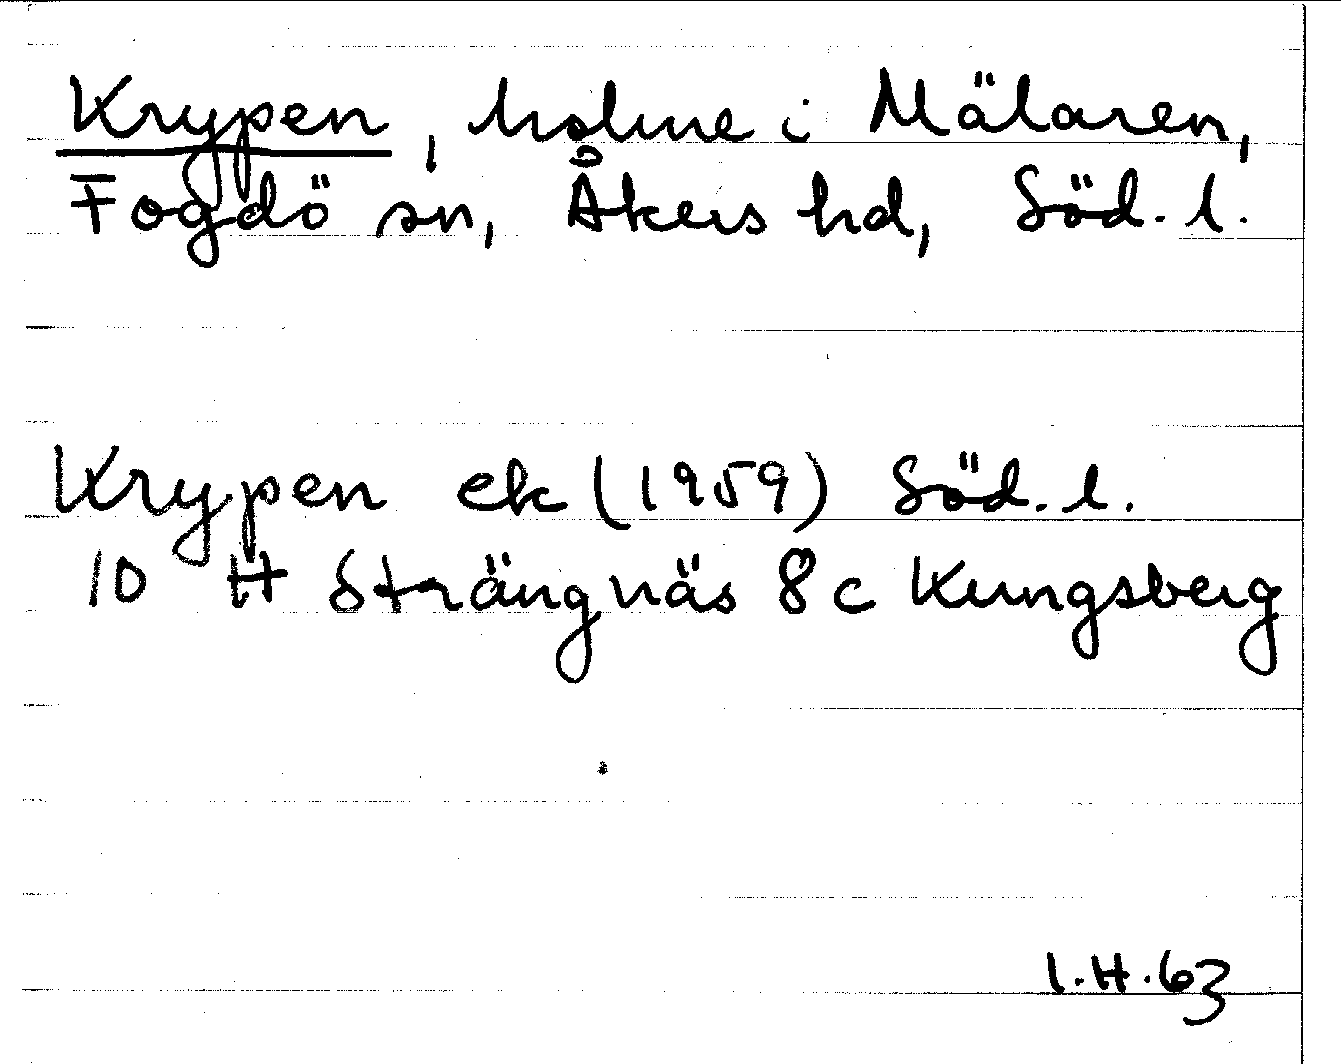 Krypen, holme i Mälaren,
Fogdö sn, Åkers hd, Söd. l.
Krypen ek (1959) Söd. l.
10 H Strängnäs 8 c Kungsberg
I.H.63